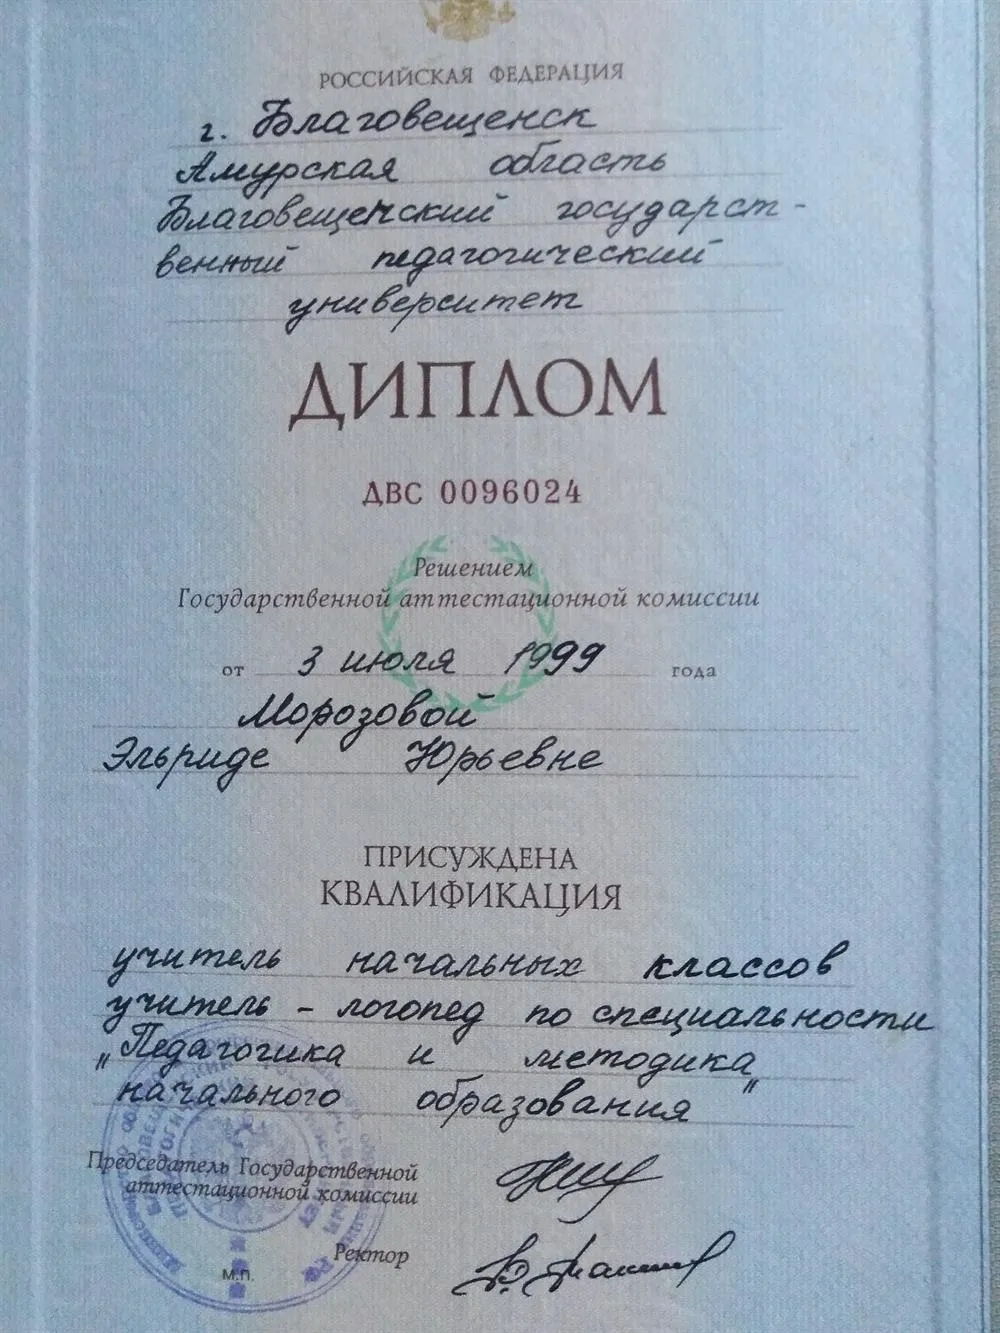 РОССИЙСКАЯ ФЕДЕРАЦИЯ
г. Благовещенск
Амурская область
Благовещенский государст-
венный педагогический
университет
ДИПЛОМ
ДВС 0096024
Решением
Государственной аттестационной комиссии
от 3 июля 1999 года
Морозовой
Эльриде Юрьевне
ПРИСУЖДЕНА
КВАЛИФИКАЦИЯ
учитель начальных классов
учитель - логопед по специальности
„Педагогика и методика
начального образования"
Председатель Государственной
аттестационной комиссии
Ректор
М.П.